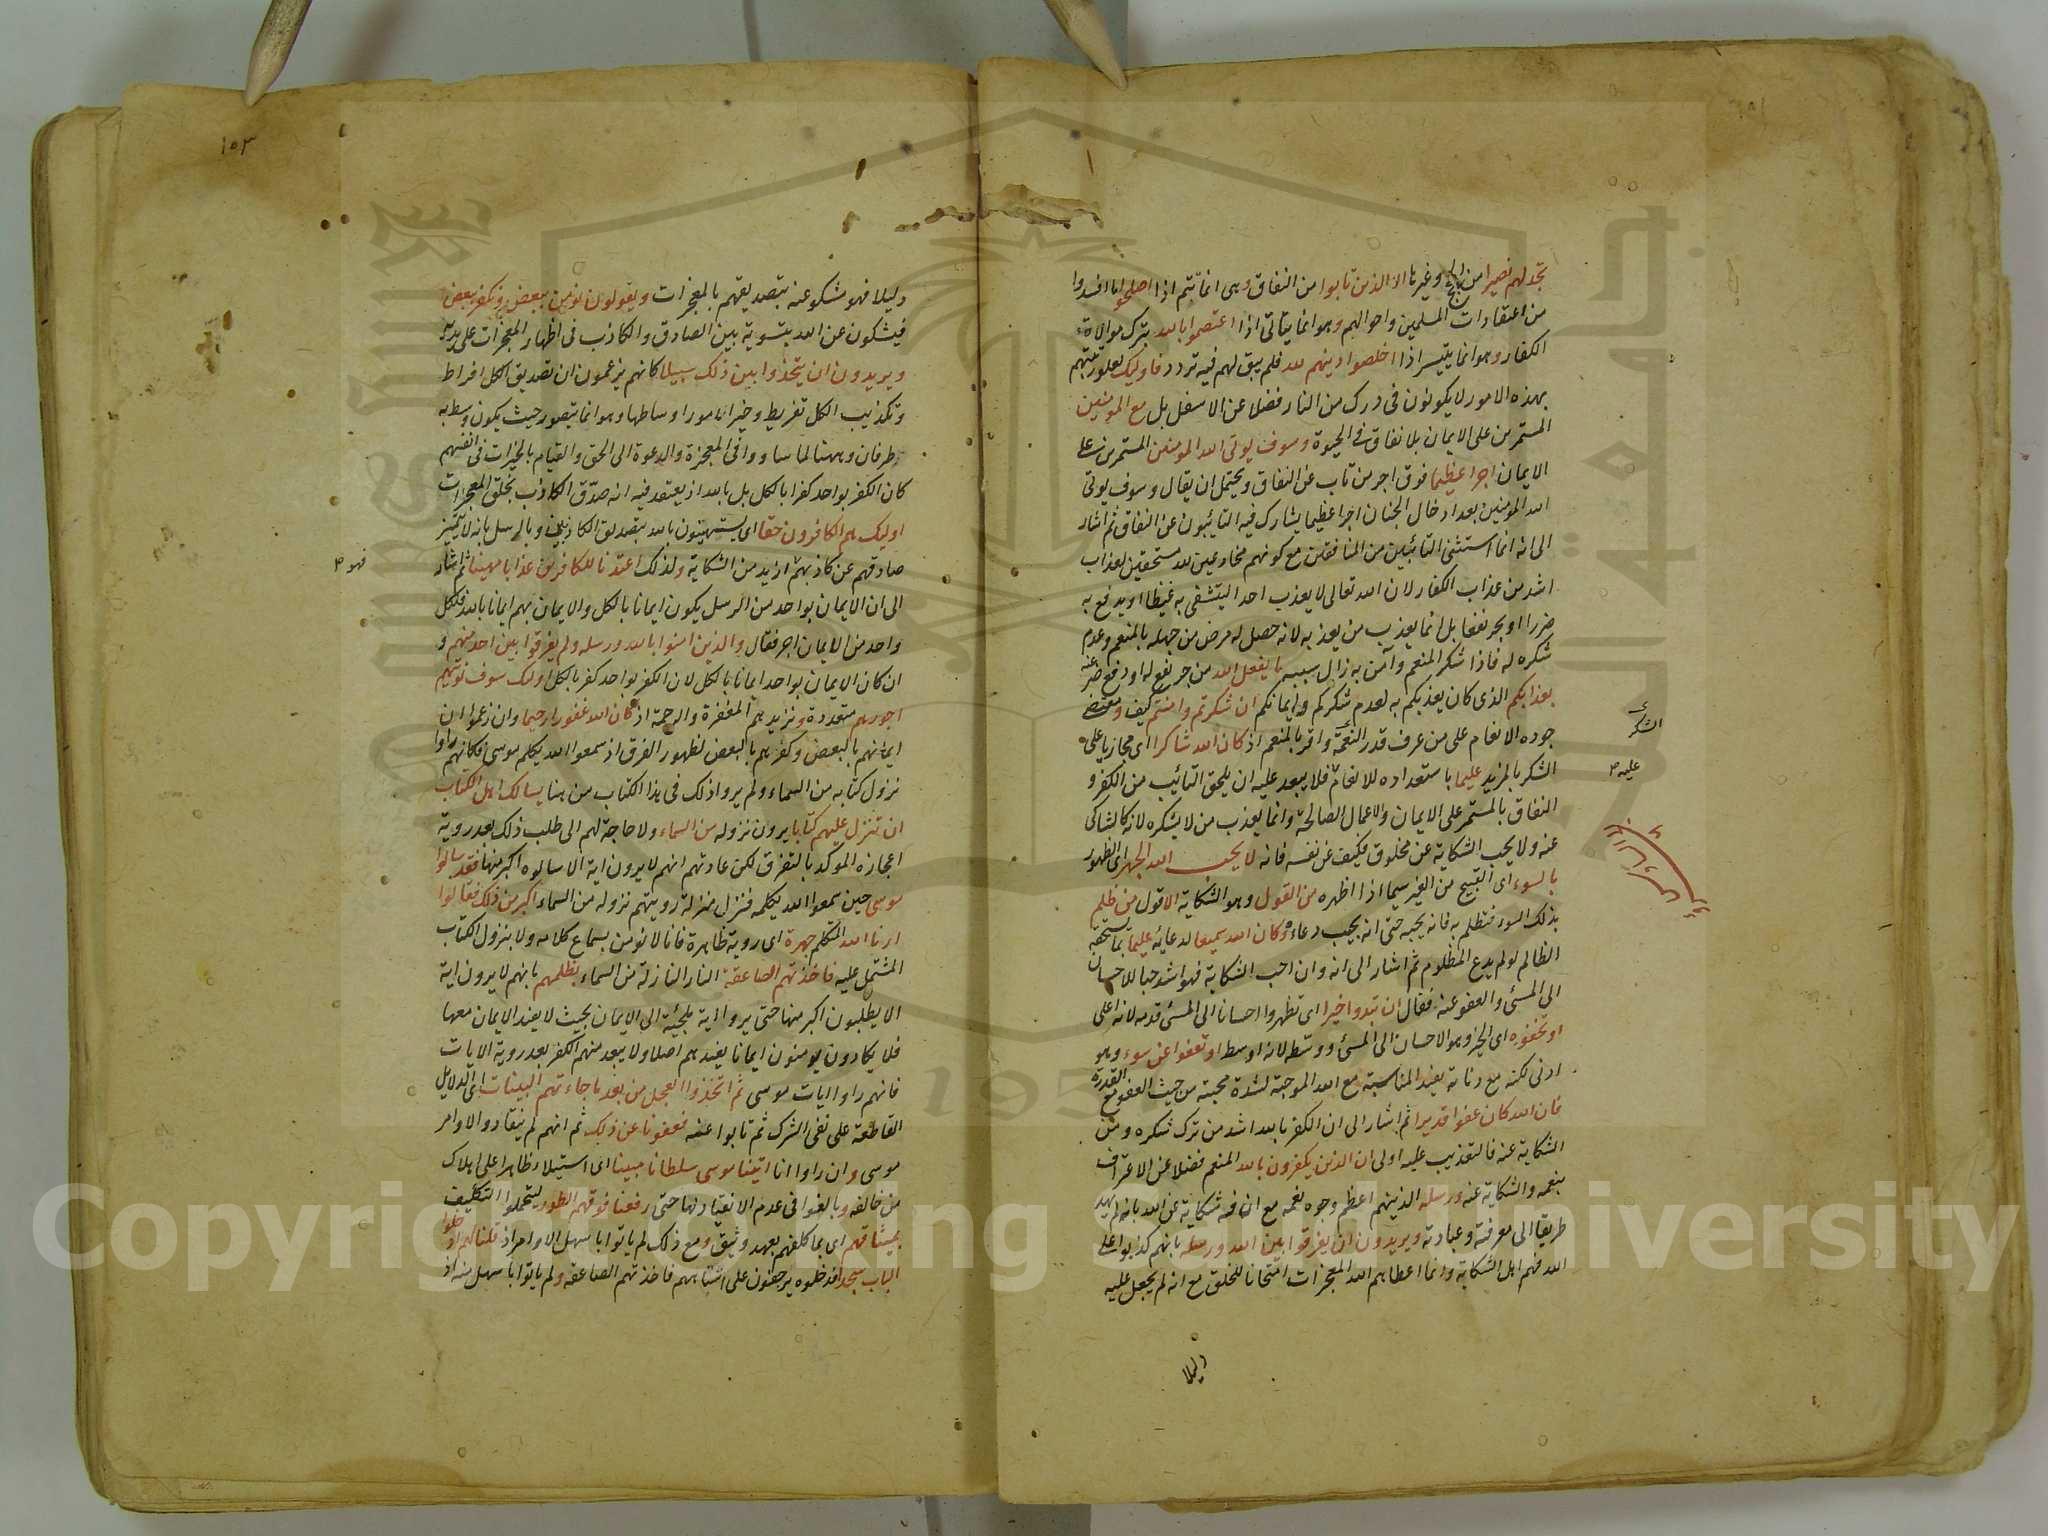 تجد لهم نصيرا من الحجج وغيرها الا الذين تابوا من النفاق وهى انما تتم اذا اصلحوا ما افسدوا
من اعتقادات المسلمين واحوالهم وهو انما يتاتى اذا اعتصموا بالله بترك موالاة
الكفار وهو انما يتيسر اذا اخلصوا دينهم لله فلم يبق لهم فيه تردد فاوليك لعلو رتبتهم
بهذه الامور لا يكونون فى درك من النار فضلا عن الاسفل بل مع المومنين
المستمرين على الايمان بلا نفاق فى الحيوة وسوف يوتى الله المومنين المستمرين على
الايمان اجرا عظيما فوق اجر من تاب عن النفاق ويحتمل ان يقال وسوف يوتى
الله المومنين بعد ادخال الجنان اجرا عظيما يشارك فيه التائبون عن النفاق ثم اشار
الى انه انما استثنى التائبين من المنافقين مع كونهم مخادعين لله مستحقين لعذاب
اشد من عذاب الكفار لان الله تعالى لا يعذب احدا ليتشفى به غيظا او يدفع به
ضررا او يجر نفعا بل انما يعذب من يعذبه لانه حصل له مرض من جهله بالمنعم وعدم
شكره له فاذا شكر المنعم وآمن به زال سببه ما يفعل الله من جر نفع له او دفع ضر عنه
بعذابكم الذى كان يعذبكم به لعدم شكركم وايمانكم ان شكرتم وامنتم كيف ومقتضى
جوده الانعام على من عرف قدر النعمة واقر بالمنعم اذ كان الله شاكرا اى مجازيا على
الشكر
الشكر بالمزيد عليما باستعداده للانعام فلا يبعد عليه ان يلحق التائب من الكفر و
عليه
النفاق بالمستمر على الايمان والاعمال الصالحة وانما يعذب من لا يشكره لانه كالشاكى
عنه ولا يحب الشكاية عن مخلوق فكيف عن نفسه فانه لا يحب الله الجهر اى الظهور
بالسوء اى القبيح من الغير سيما اذا اظهره من القول وهو الشكاية الا قول من ظلم
بذلك السوء فتظلم به فانه يحبه حتى انه يجيب دعاءه وكان الله سميعا لدعائه عليما بما يستحقه
الظالم لو لم يدع المظلوم ثم اشار الى انه وان احب الشكاية فهو اشد حبا للاحسان
الى المسئ والعفو عنه فقال ان تبدوا خيرا اى تظهروا احسانا الى المسئ قدمه لانه اعلى
او تخفوه اى الخير وهو الاحسان الى المسئ ووسطه لانه اوسط او تعفوا عن سوء وهو
ادنى لكنه مع دناءته يفيد المناسبة مع الله الموجبة لشدة محبته من حيث العفو مع القدرة
فان الله كان عفوا قديرا ثم اشار الى ان الكفر بالله اشد من ترك شكره ومن
الشكاية عنه فالتعذيب عليه اولى ان الذين يكفرون بالله المنعم فضلا عن الاعتراف
بنعمه والشكاية عنه ورسله الذين هم اعظم وجوه نعمه مع ان فيه شكاية عن الله بانه لم يهد
طريقا الى معرفته وعبادته ويريدون ان يفرقوا بين الله ورسله بانهم كذبوا على
الله فهم اهل الشكاية وانما اعطاهم الله المعجزات امتحانا للخلق مع انه لم يجعل عليه
دليلا
١٥٣
دليلا فهو مشكو عنه بتصديقهم بالمعجزات ويقولون نومن ببعض ونكفر ببعض
فيشكون عن الله بتسوية بين الصادق والكاذب فى اظهار المعجزات على يديه
ويريدون ان يتخذوا بين ذلك سبيلا كانهم يزعمون ان تصديق الكل افراط
وتكذيب الكل تفريط وخير الامور اوساطها وهو انما يتصور حيث يكون وسط به
طرفان وههنا لما تساووا فى المعجزة والدعوة الى الحق والقيام بالخيرات فى انفسهم
كان الكفر بواحد كفرا بالكل بل بالله اذ يعتقد فيه انه صدّق الكاذب بخلق المعجزات
اوليك هم الكافرون حقا اى يستهينون بالله بتصديق الكاذبين وبالرسل بانه لا يتميز
صادقهم عن كاذبهم ازيد من الشكاية ولذلك اعتدنا للكافرين عذابا مهينا ثم اشار
فهو
الى ان الايمان بواحد من الرسل يكون ايمانا بالكل والايمان بهم ايمانا بالله فلكل
واحد من الايمان اجر فقال والذين امنوا بالله ورسله ولم يفرقوا بين احد منهم و
ان كان الايمان بواحد ايمانا بالكل لان الكفر بواحد كفر بالكل اوليك سوف نوتيهم
اجورهم متعددة ونزيدهم المغفرة والرحمة اذ كان الله غفورا رحيما وان زعموا ان
ايمانهم بالبعض وكفرهم بالبعض لظهور الفرق اذ سمعوا الله يكلم موسى فكانهم راوا
نزول كتابه من السماء ولم يروا ذلك فى هذا الكتاب من هنا يسالك اهل الكتاب
ان تنزل عليهم كتابا يرون نزوله من السماء ولا حاجة لهم الى طلب ذلك بعد روية
اعجازه الموكد بالتفرق لكن عادتهم انهم لا يرون اية الا سالوه اكبر منها فقد سالوا
موسى حين سمعوا الله يكلمه فنزل منزلة رويتهم نزوله من السماء اكبر من ذلك فقالوا
ارنا الله المتكلم جهرة اى روية ظاهرة فانا لا نومن بسماع كلامه ولا بنزول الكتاب
المشتمل عليه فاخذتهم الصاعقة النار النازلة من السماء بظلمهم بانهم لا يرون اية
الا يطلبون اكبر منها حتى يروا اية ملجئة الى الايمان بحيث لا يفيد الايمان معها
فلا يكادون يومنون ايمانا يفيدهم اصلا ولا يبعد منهم الكفر بعد روية الايات
فانهم راوا ايات موسى ثم اتخذوا العجل من بعد ما جاءتهم البينات اى الدلايل
القاطعة على نفى الشرك ثم تابوا عنه فعفونا عن ذلك ثم انهم لم ينقادوا لاوامر
موسى وان راوا انا اتينا موسى سلطانا مبينا اى استيلاء ظاهرا على اهلاك
من خالفه وبالغوا فى عدم الانقياد لها حتى رفعنا فوقهم الطور ليتحملوا التكليف
بميثاقهم اى بما كلفهم بعهد وثيق ومع ذلك لم ياتوا باسهل الاوامر اذ قلنا لهم ادخلوا
الباب سجدا فدخلوه يزحفون على استاههم فاخذتهم الصاعقة ولم ياتوا باسهل منه اذ
Copyright © King Saud University
جامعة الملك سعود
1957